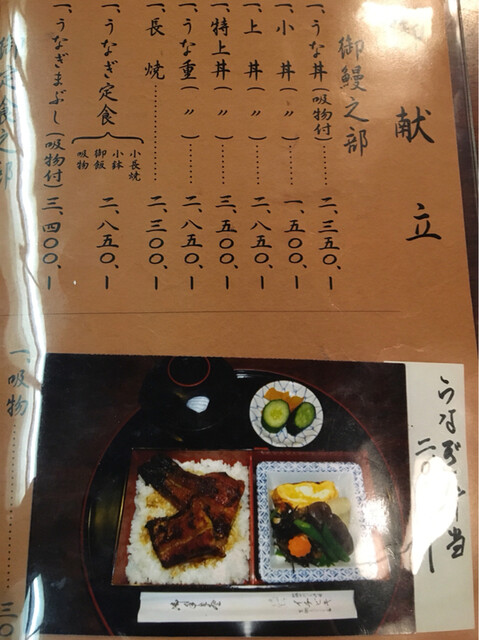 献立
御鰻之部
一、うな丼(吸物付)……二、三五〇、ー
一、小 丼(〃)……一、五〇〇、ー
一、上 丼(〃)……二、八五〇、ー
一、特上丼(〃)……三、五〇〇、ー
一、うな重(〃)……二、八五〇、ー
一、長 焼……二、三〇〇、ー
一、うなぎ定食 小長焼 小鉢 御飯 吸物 二、八五〇、ー
一、うなぎまぶし(吸物付)三、四〇〇、ー
御定食之部
一、吸物……三〇
うなぎ弁当